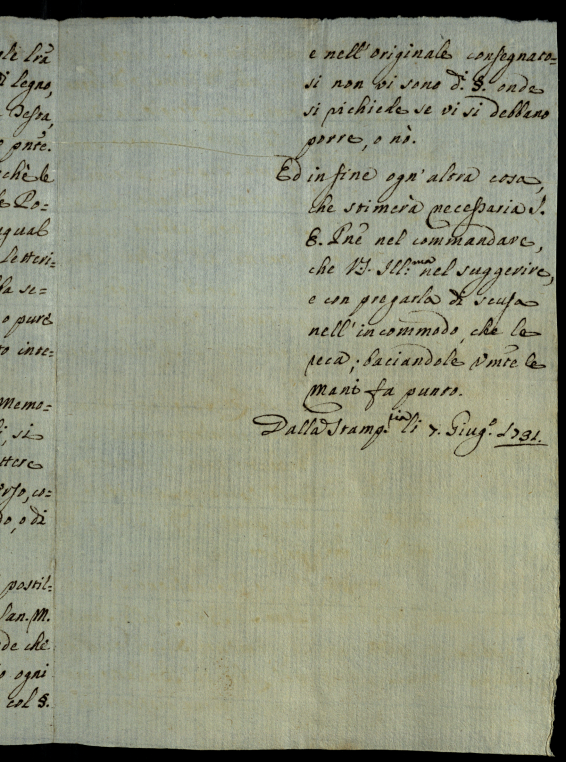 ale trà
di legno,
Testa,
o pnte.
chè le
le Po=
ugual
Letteri=
la se=
o pure
to inte=
memo=
i, si
ettere
erso, co=
do, o di
postil=
San. M.
de che
o ogni
col §.
e nell'originale consegnato=
si non vi sono di §. onde
si richiede se vi si debbano
porre, o nò.
Ed in fine ogn'altra cosa,
che stimerà necessaria S.
E. Pne nel commandare,
che V.S. Ill:ma nel suggerire,
e con pregarla di scusa
nell'incommodo, che le
reca; baciandole Vmte le
mani fa punto.
Dalla Stamp:ria li 7. Giug.o 1731.